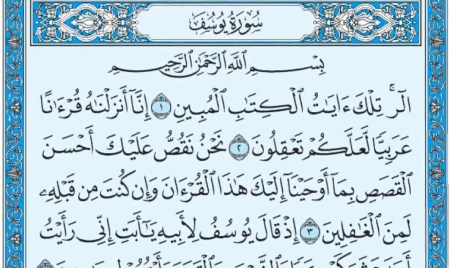 سُورَةُ يُوسُفَ
بِسْمِ اللَّهِ الرَّحْمَٰنِ الرَّحِيمِ
الٓر ۚ تِلْكَ ءَايَٰتُ الْكِتَٰبِ الْمُبِينِ ١ إِنَّا أَنزَلْنَٰهُ قُرْءَٰنًا
عَرَبِيًّا لَّعَلَّكُمْ تَعْقِلُونَ ٢ نَحْنُ نَقُصُّ عَلَيْكَ أَحْسَنَ
الْقَصَصِ بِمَا أَوْحَيْنَا إِلَيْكَ هَٰذَا الْقُرْءَانَ وَإِن كُنتَ مِن قَبْلِهِ
لَمِنَ الْغَٰفِلِينَ ٣ إِذْ قَالَ يُوسُفُ لِأَبِيهِ يَٰأَبَتِ إِنِّي رَأَيْتُ